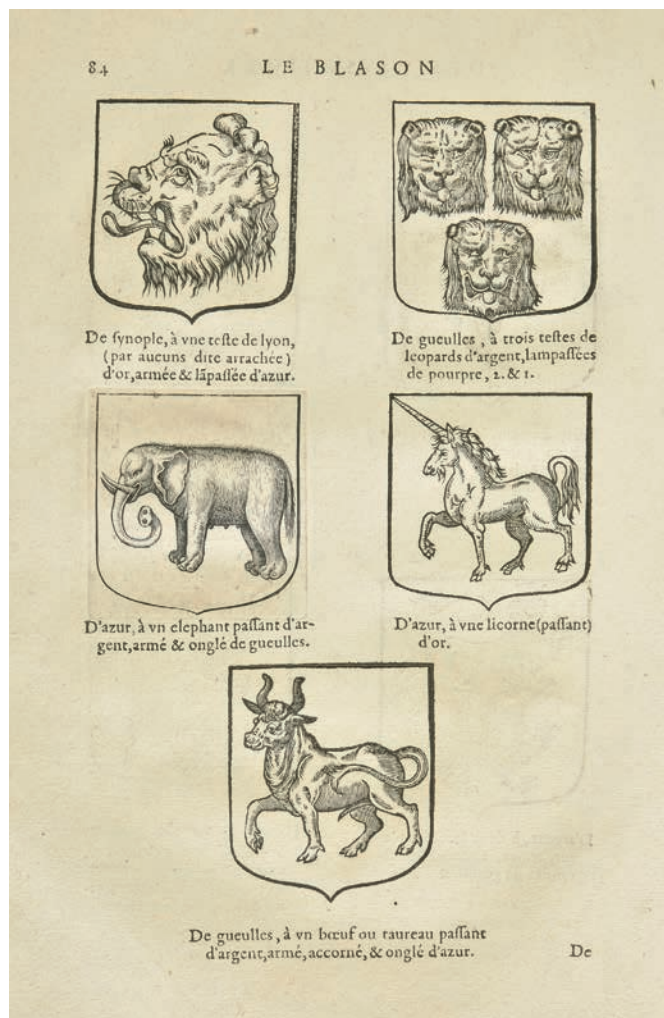 84 LE BLASON
De ſynople, à vne teſte de lyon,
(par aucuns dite arrachée)
d'or, armée & lãpaſſée d'azur.
De gueulles, à trois teſtes de
leopards d'argent, lampaſſées
de pourpre, 2. & 1.
D'azur, à vn elephant paſſant d'ar-
gent, armé & onglé de gueulles.
D'azur, à vne licorne (paſſant)
d'or.
De gueulles, à vn bœuf ou taureau paſſant
d'argent, armé, accorné, & onglé d'azur.
De